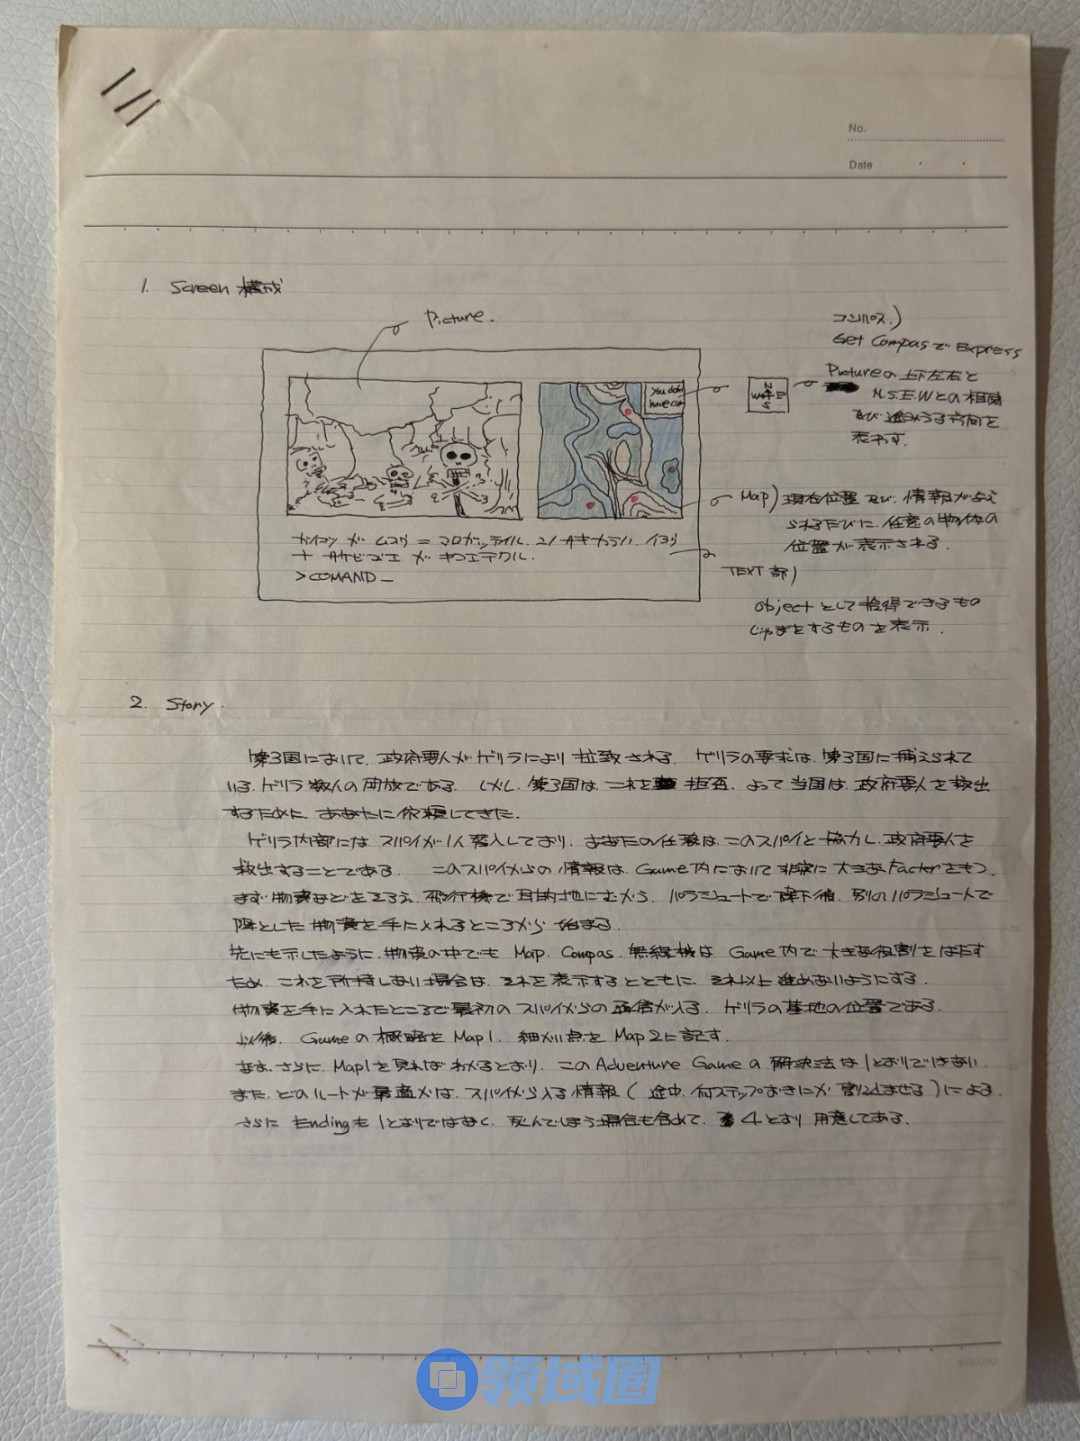 No.
Date
1. Screen 構成
Picture.
コンパス)
Get Compas で Express
Pictureの上下左右と
N.S.E.Wとの相関
及び進みうる方向を
表わす.
You don't
have com
N
W E
S
Map) 現在位置 及び 情報が与え
られるたびに、任意の物体の
位置が表示される.
ガイコツ ガ ムコウ ニ コロガッテイル.
サケビゴエ ガ キコエテクル.
>COMAND_
TEXT 部)
Objectとして拾得できるもの
じゃまをするものを表示.
2. Story.
第3国において、政府要人がゲリラにより拉致される. ゲリラの要求は、第3国に捕えられて
いる、ゲリラ数人の開放である. しかし、第3国は、これを 拒否. よって当国は、政府要人を救出
するために、あなたに依頼してきた.
ゲリラ内部には スパイが1人潜入しており、あなたの任務は、このスパイと協力し、政府要人を
救出することである. このスパイからの情報は、Game内において非常に大きなFactorをもつ.
まず物資などをそろえ、飛行機で目的地にむかう. パラシュートで降下後、別のパラシュートで
降とした物資を手に入れるところから始まる.
先にも示したように、物資の中でも Map, Compas, 無線機は Game内で大きな役割をはたす
ため、これを所持しない場合は、それを表示するとともに、それ以上進めないようにする.
物資を手に入れたところで最初のスパイからの通信が入る. ゲリラの基地の位置である.
以後、Gameの概略を Map1. 細かい点を Map2に記す.
なお、さらに、Map1を見ればわかるとおり、このAdventure Gameの解決法は1とおりではない.
また、どのルートが最適かは、スパイから入る情報(途中、何ステップおきにか割り込ませる)による.
さらに Endingも1とおりではなく、死んでしまう場合も含めて、4とおり用意してある.
领域圈